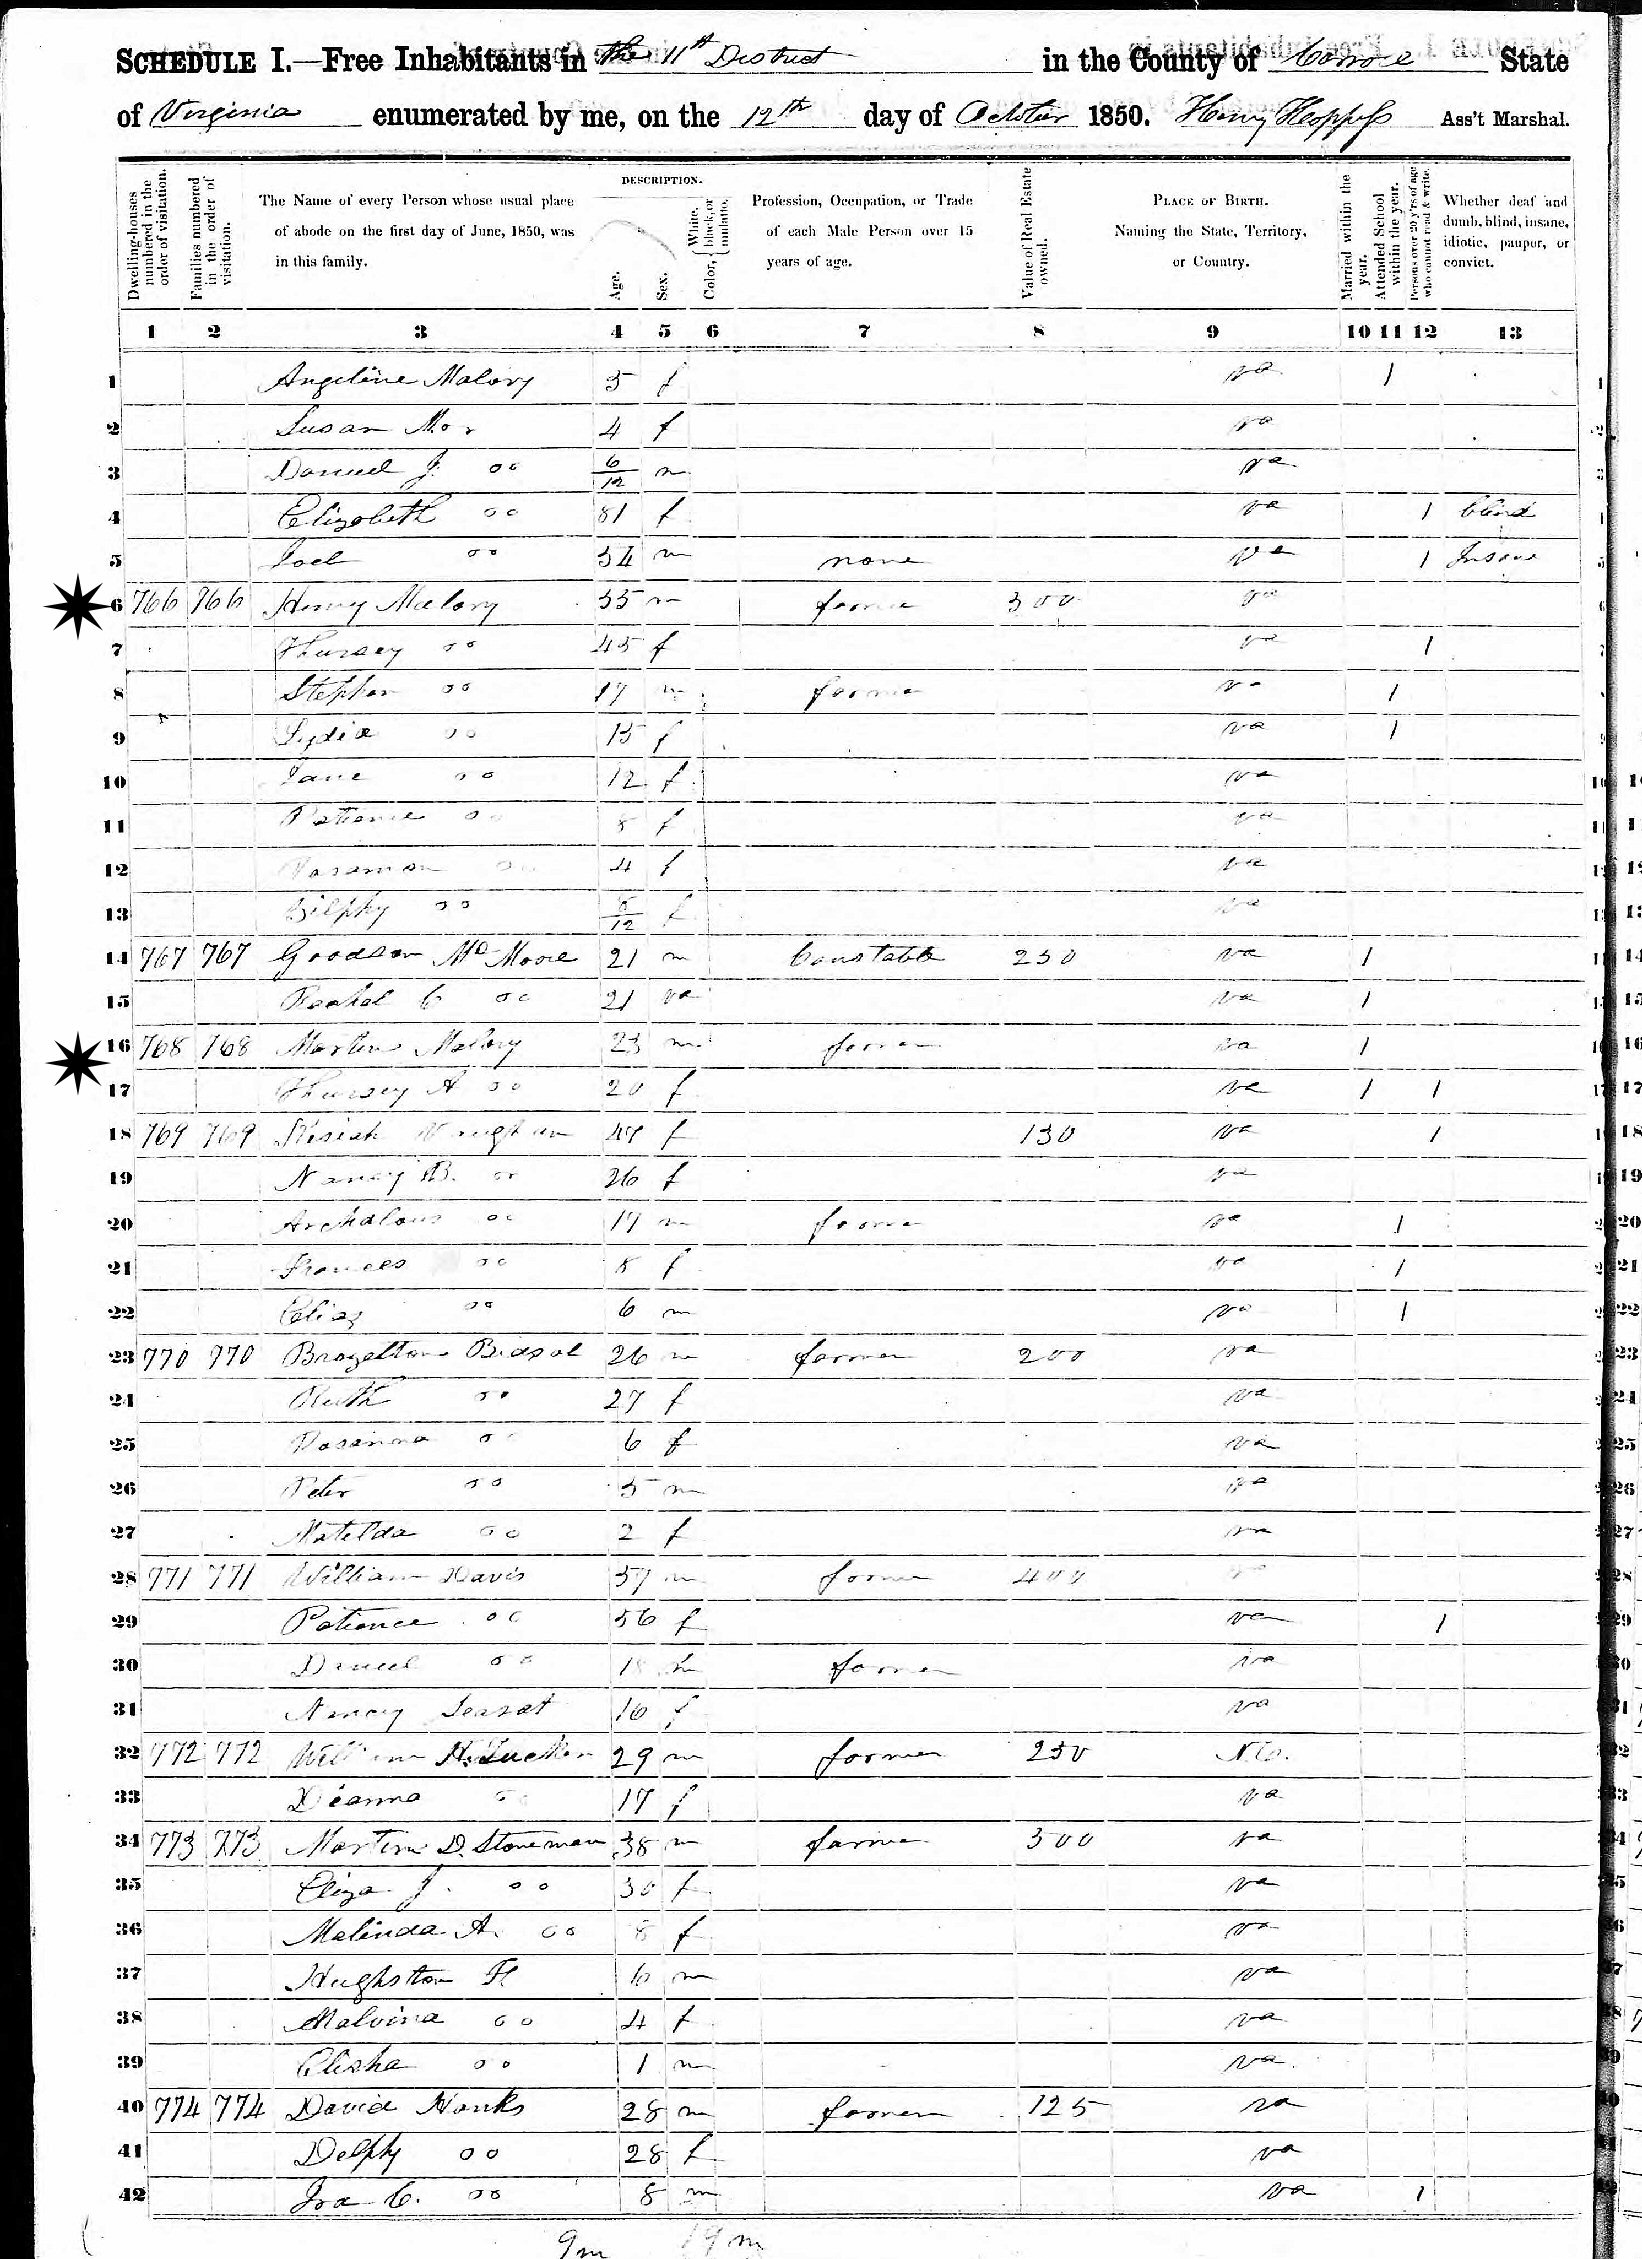 SCHEDULE I.—Free Inhabitants in the 11th District in the County of State
of Virginia enumerated by me, on the 12th day of October 1850. Henry Ass't Marshal.
Dwelling-houses numbered in the order of visitation.
Families numbered in the order of visitation.
The Name of every Person whose usual place of abode on the first day of June, 1850, was in this family.
DESCRIPTION.
Age.
Sex.
Color, { White, black, or mulatto.
Profession, Occupation, or Trade of each Male Person over 15 years of age.
Value of Real Estate owned.
PLACE OF BIRTH. Naming the State, Territory, or Country.
Married within the year.
Attended School within the year.
Persons over 20 y'rs of age who cannot read & write.
Whether deaf and dumb, blind, insane, idiotic, pauper, or convict.
1 2 3 4 5 6 7 8 9 10 11 12 13
1 Angeline Malory 5 f va 1
2 Susan 4 f va
3 J. oo 6/12 m va
4 Elizabeth oo 81 f va 1 blind
5 Joel oo 34 m none va 1 Insane
6 766 766 Henry Malory 55 m farmer 300 va
7 Thursey oo 45 f va 1
8 Stephen oo 17 m farmer va 1
9 Lydia oo 15 f va 1
10 Jane oo 12 f va
11 Patience oo 8 f va
12 oo 4 f va
13 oo 8/12 f va
14 767 767 Goodson Mc Moore 21 m Constable 250 va 1
15 Rachel C oo 21 va 1
16 768 768 Martin Malory 23 m farmer va 1
17 Thursey A oo 20 f va 1 1
18 769 769 47 f 130 va 1
19 Nancy B. oo 26 f va
20 oo 17 m farmer va 1
21 Frances oo 8 f va 1
22 oo 6 m va 1
23 770 770 26 m farmer 200 va
24 Ruth oo 27 f va
25 Rosanna oo 6 f va
26 Peter oo 5 m va
27 Matilda oo 2 f va
28 771 771 William Davis 57 m farmer 400 va
29 Patience oo 56 f va 1
30 oo 18 m farmer va
31 Nancy 16 f va
32 772 772 William 29 m farmer 250 N Co.
33 Dianna oo 17 f va
34 773 773 Martin D. Stoneman 38 m farmer 300 va
35 Eliza J. oo 30 f va
36 Malinda A. oo 8 f va
37 Hughston 6 m va
38 Malvina oo 4 f va
39 Elisha oo 1 m va
40 774 774 David Hanks 28 m farmer 125 va
41 Delphy oo 28 f va
42 Ira C. oo 8 m va 1
9m 19 m